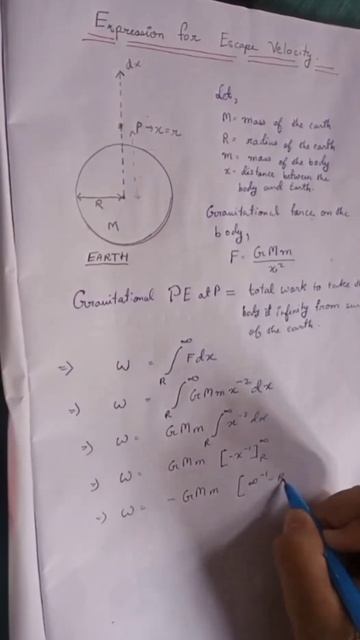 Expression for Escape Velocity.
dx
P → x = r
R
M
EARTH
Let,
M = mass of the earth
R = radius of the earth
m = mass of the body
x = distance between the
body and Earth.
Gravitational force on the
body,
F = GMm/x²
Gravitational PE at P = total work to take
body infinity from
of the earth.
⇒ W = ∫_R^∞ Fdx
⇒ W = ∫_R^∞ GMm x⁻² dx
⇒ W = GMm ∫_R^∞ x⁻² dx
⇒ W = GMm [-x⁻¹]_R^∞
⇒ W = - GMm [∞⁻¹ - R